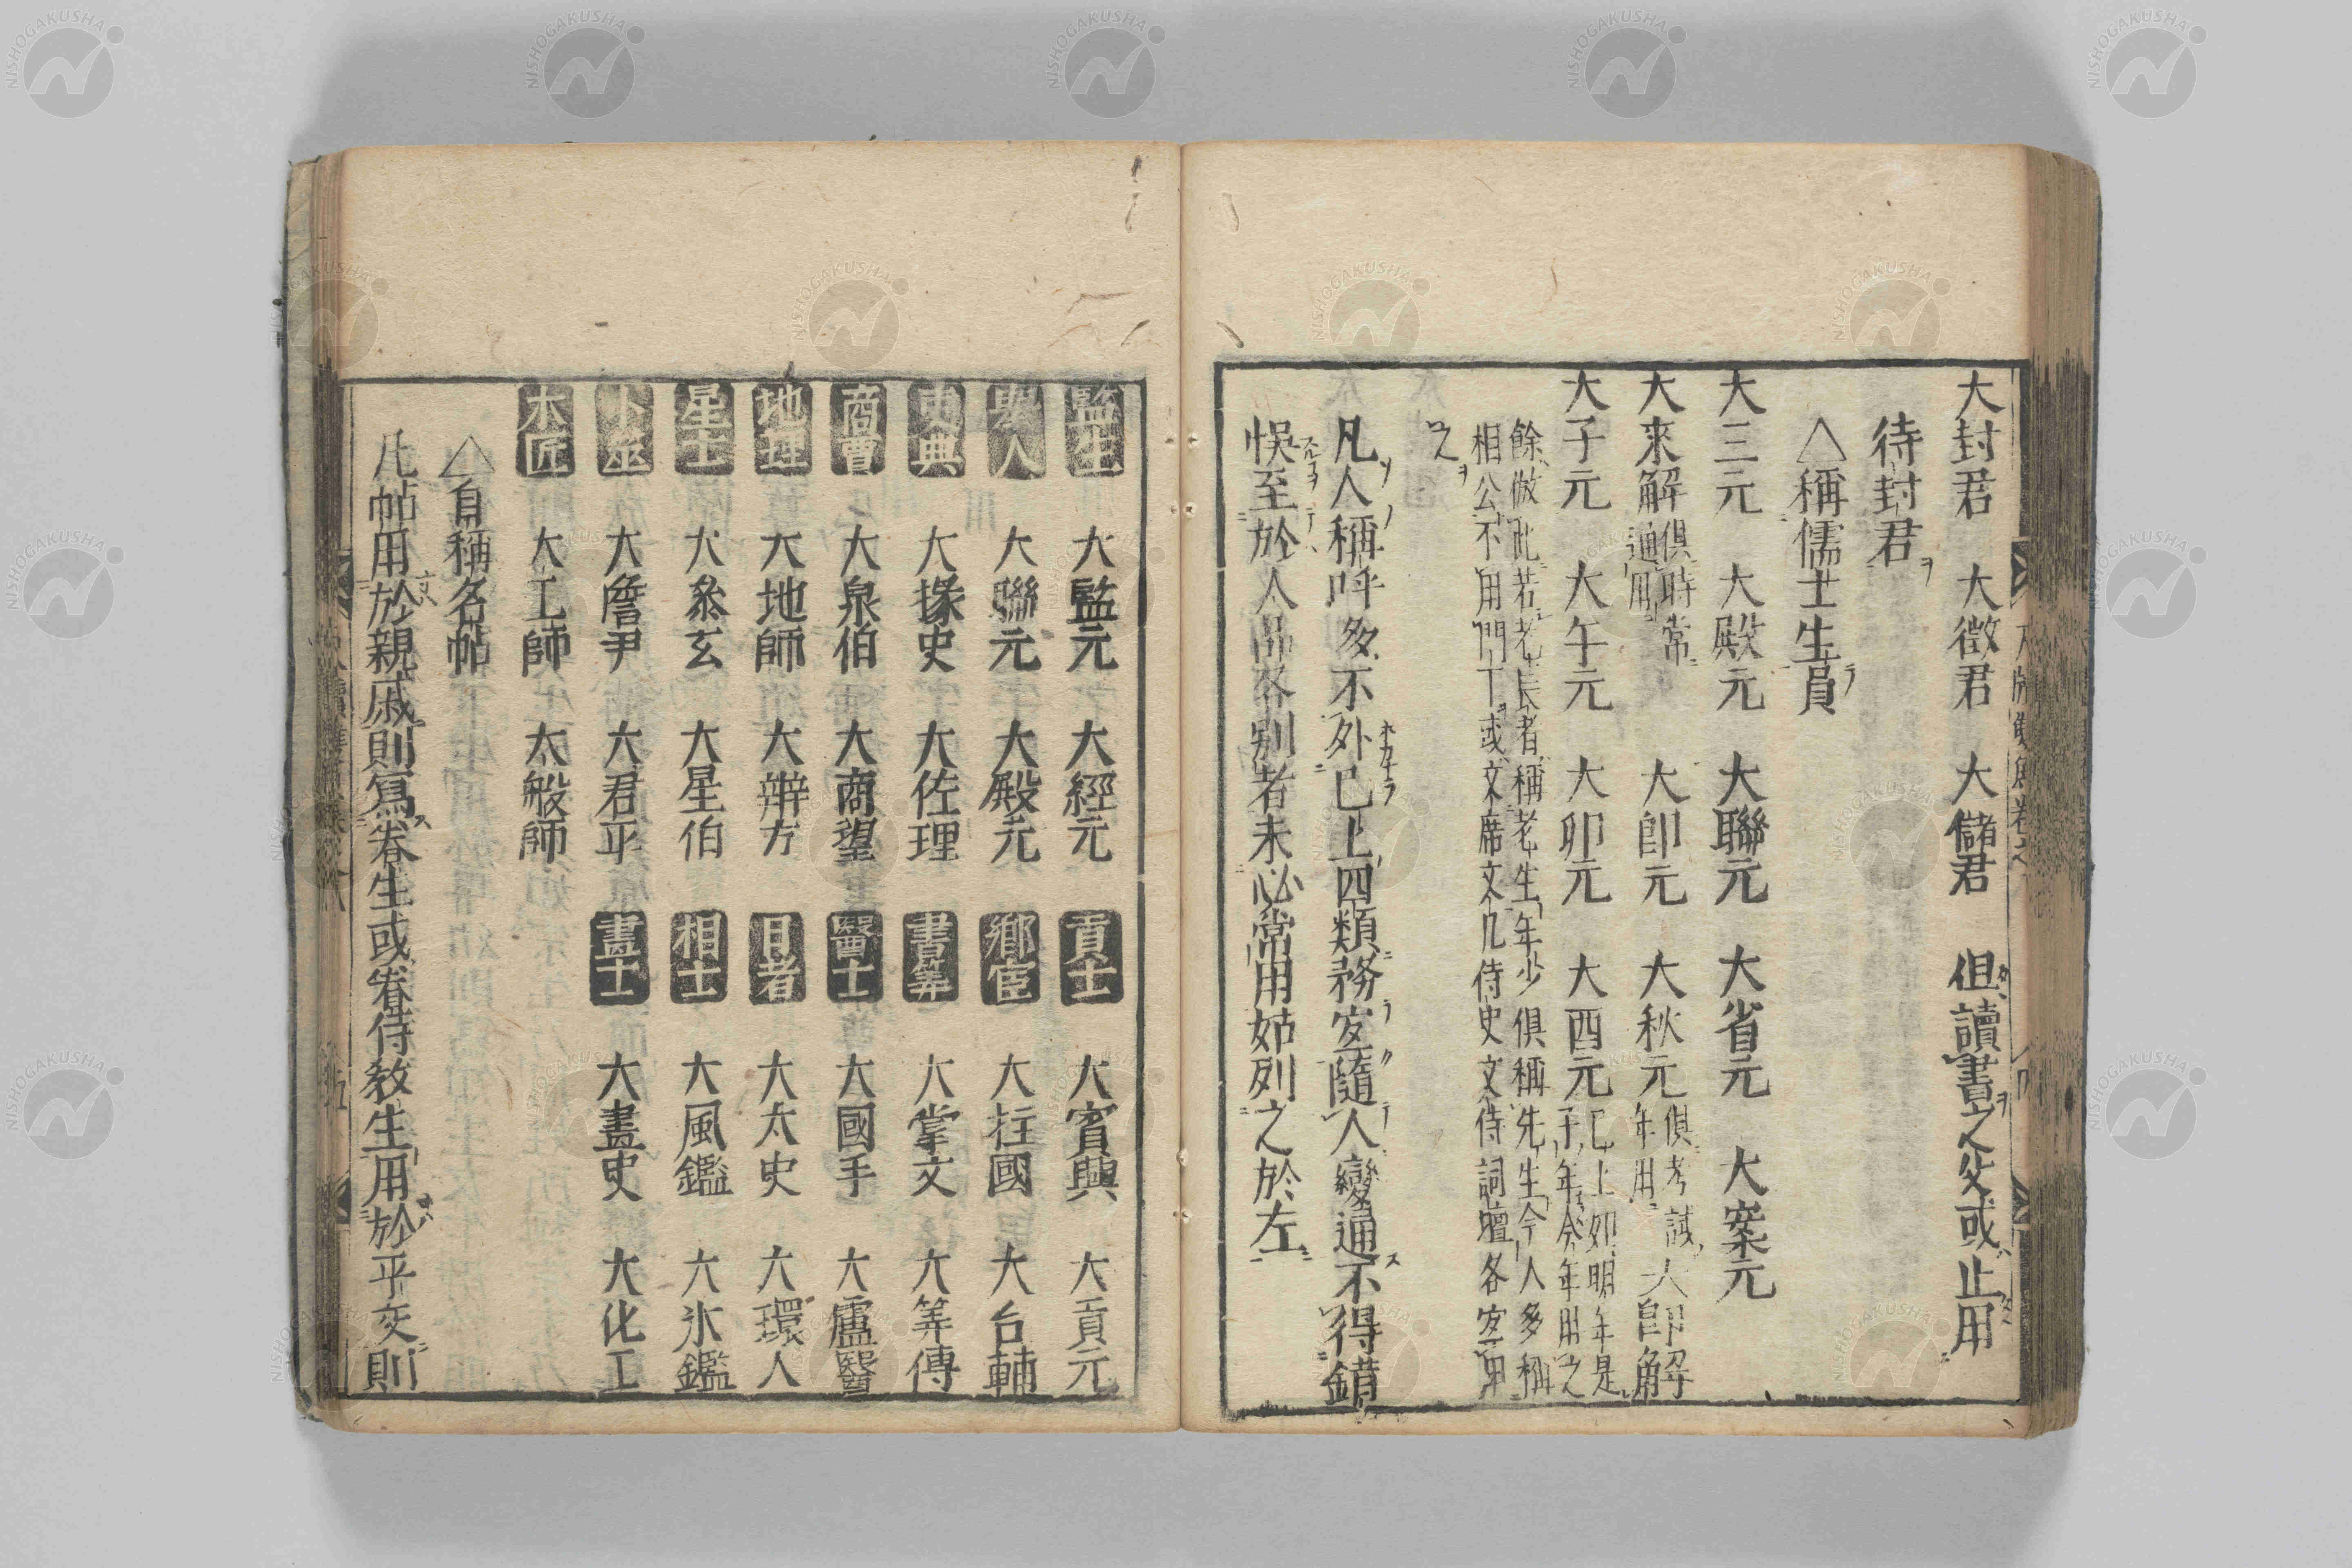 大封君 大徴君 大儲君 但讀書之父或止用
待封君
△稱儒士生員
大三元 大殿元 大聯元 大省元 大案元
大來解 俱時常通用 大郎元 大秋元 俱考試年用 大郎解
大子元 大午元 大卯元 大酉元 已上如明年是子年今年用之
餘倣此若老長者稱老生年少俱稱先生今人多稱
相公不用門下或文席文几侍史文侍詞壇各宜用
之
凡人稱呼多不外已上四類務宜隨人變通不得錯
悞至於人品各別者未必常用姑列之於左
監生 大監元 大經元 貢士 大賓興 大貢元
舉人 大聯元 大殿元 鄉宦 大柱國 大台輔
吏典 大掾史 大佐理 書筭 大掌文 大筭傳
商賈 大泉伯 大商望 醫士 大國手 大盧醫
地理 大地師 大辨方 日者 大太史 大環人
星士 大叅玄 大星伯 相士 大風鑑 大氷鑑
卜筮 大詹尹 大君平 畫士 大畫史 大化工
木匠 大工師 大般師
△自稱名帖
凡帖用於親戚則寫眷生或眷侍教生用於平交則
NISHOGAKUSHA